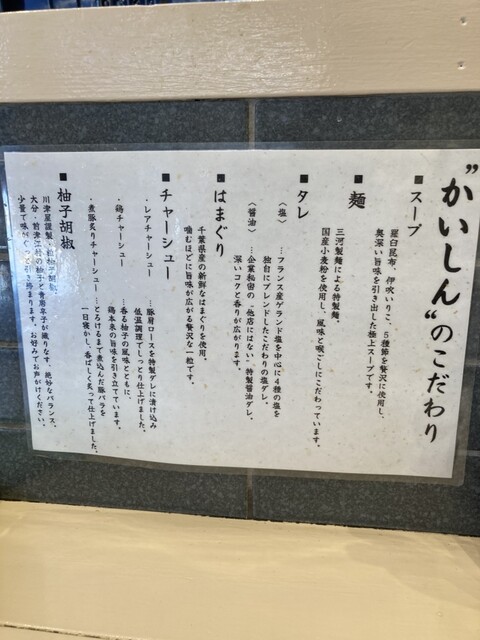 "かいしん"のこだわり
■スープ
羅臼昆布、伊吹いりこ、5種節を贅沢に使用し、
奥深い旨味を引き出した極上スープです。
■麺
三河製麺による特製麺。
国産小麦粉を使用し、風味と喉ごしにこだわっています。
■タレ
〈塩〉…フランス産ゲランド塩を中心に4種の塩を
独自にブレンドしたこだわりの塩ダレ。
〈醤油〉…企業秘密の"他店にはない"特製醤油ダレ。
深いコクと香りが広がります。
■はまぐり
千葉県産の新鮮なはまぐりを使用。
噛むほどに旨味が広がる贅沢な一粒です。
■チャーシュー
・レアチャーシュー…豚肩ロースを特製ダレに漬け込み
低温調理でしっとり仕上げました。
・鶏チャーシュー…香る柚子の風味とともに、
鶏本来の旨味を引き立てています。
・煮豚炙りチャーシュー…とろけるまで煮込んだ豚バラを
一日寝かし、香ばしく炙って仕上げました。
■柚子胡椒
川津屋謹製、粒柚子胡椒。
大分・前津江村の柚子と青唐辛子が織りなす、絶妙なバランス。
少量で味がぐっと引き締まります。お好みでお声がけください。